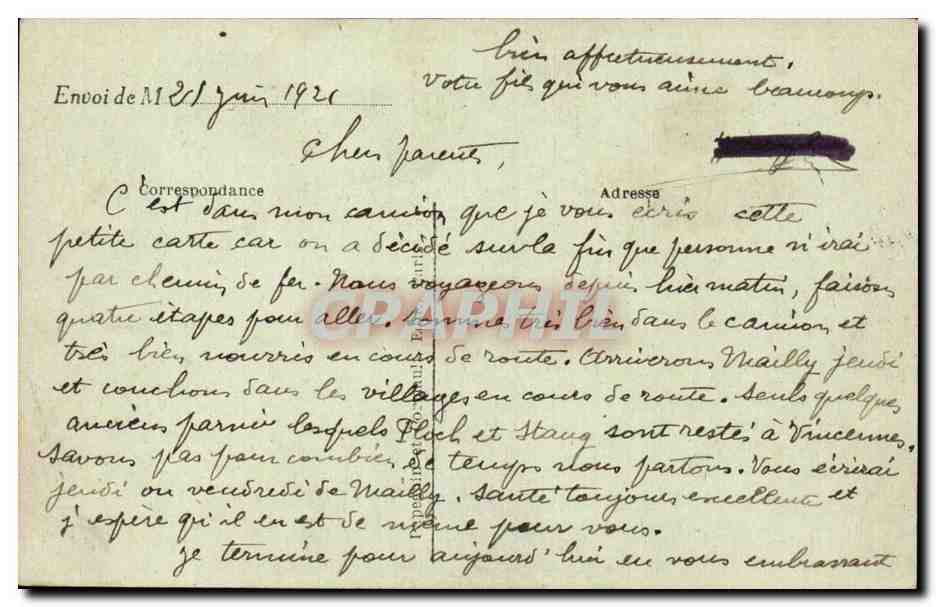 bien affectueusement.
Votre fils qui vous aime beaucoup.
Envoi de M 21 juin 1921
Chers parents,
Correspondance
Adresse
C'est dans mon camion que je vous écris cette
petite carte car on a décidé sur la fin que personne n'irai
par chemin de fer. Nous voyageons depuis hier matin, faisons
quatre étapes pour aller. Sommes très bien dans le camion et
très bien nourris en cours de route. Arriverons Mailly jeudi
et couchons dans les villages en cours de route. Seuls quelques
anciens parmi lesquels et sont restés à Vincennes.
Savons pas pour combien de temps nous partons. Vous écrirai
jeudi ou vendredi de Mailly. Santé toujours excellente et
j'espère qu'il en est de même pour vous.
je termine pour aujourd'hui en vous embrassant
CPAPHIL